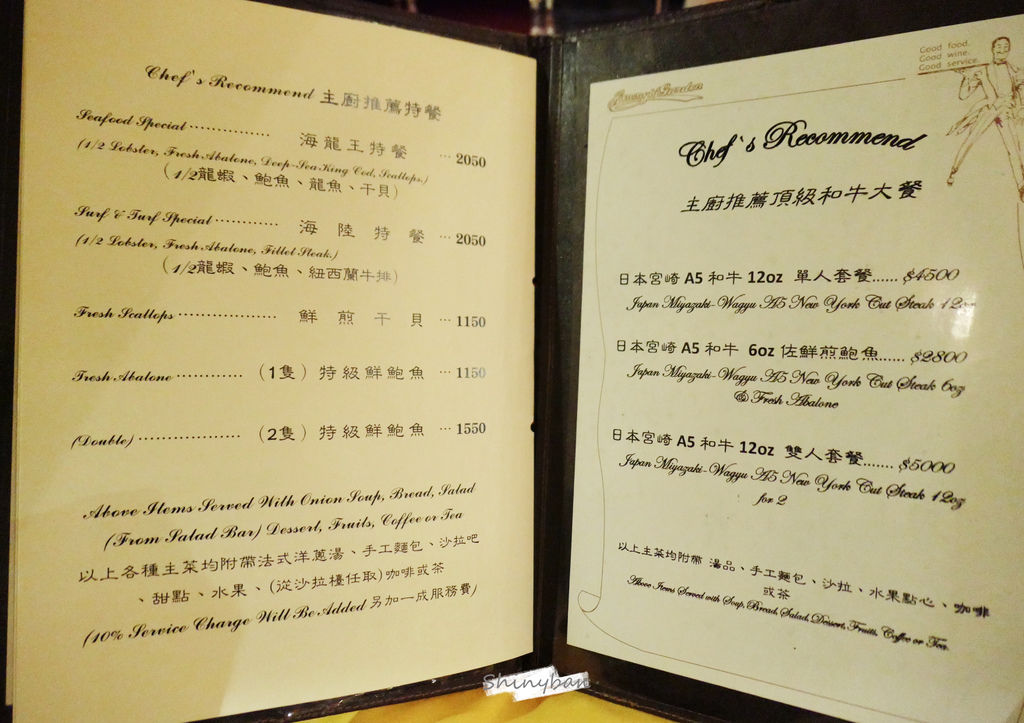 Chef's Recommend 主廚推薦特餐
Seafood Special ............... 海龍王特餐 ... 2050
(1/2 Lobster, Fresh Abalone, Deep-Sea King Cod, Scallops.)
(1/2龍蝦、鮑魚、龍魚、干貝)
Surf & Turf Special ............... 海陸特餐 ... 2050
(1/2 Lobster, Fresh Abalone, Fillet Steak.)
(1/2龍蝦、鮑魚、紐西蘭牛排)
Fresh Scallops .................. 鮮煎干貝 ... 1150
Fresh Abalone ............ (1隻) 特級鮮鮑魚 ... 1150
(Double) .................. (2隻) 特級鮮鮑魚 ... 1550
Above Items Served With Onion Soup, Bread, Salad
(From Salad Bar) Dessert, Fruits, Coffee or Tea
以上各種主菜均附帶法式洋蔥湯、手工麵包、沙拉吧
、甜點、水果、(從沙拉檯任取)咖啡或茶
(10% Service Charge Will Be Added 另加一成服務費)
Good food.
Good wine.
Good service.
Chef's Recommend
主廚推薦頂級和牛大餐
日本宮崎 A5 和牛 12oz 單人套餐...... $4500
Japan Miyazaki-Wagyu A5 New York Cut Steak 12oz
日本宮崎 A5 和牛 6oz 佐鮮煎鮑魚...... $2800
Japan Miyazaki-Wagyu A5 New York Cut Steak 6oz
& Fresh Abalone
日本宮崎 A5 和牛 12oz 雙人套餐....... $5000
Japan Miyazaki-Wagyu A5 New York Cut Steak 12oz
for 2
以上主菜均附帶 湯品、手工麵包、沙拉、水果點心、咖啡
或茶
Above Items Served with Soup, Bread, Salad, Dessert, Fruits, Coffee or Tea.
Shinyban